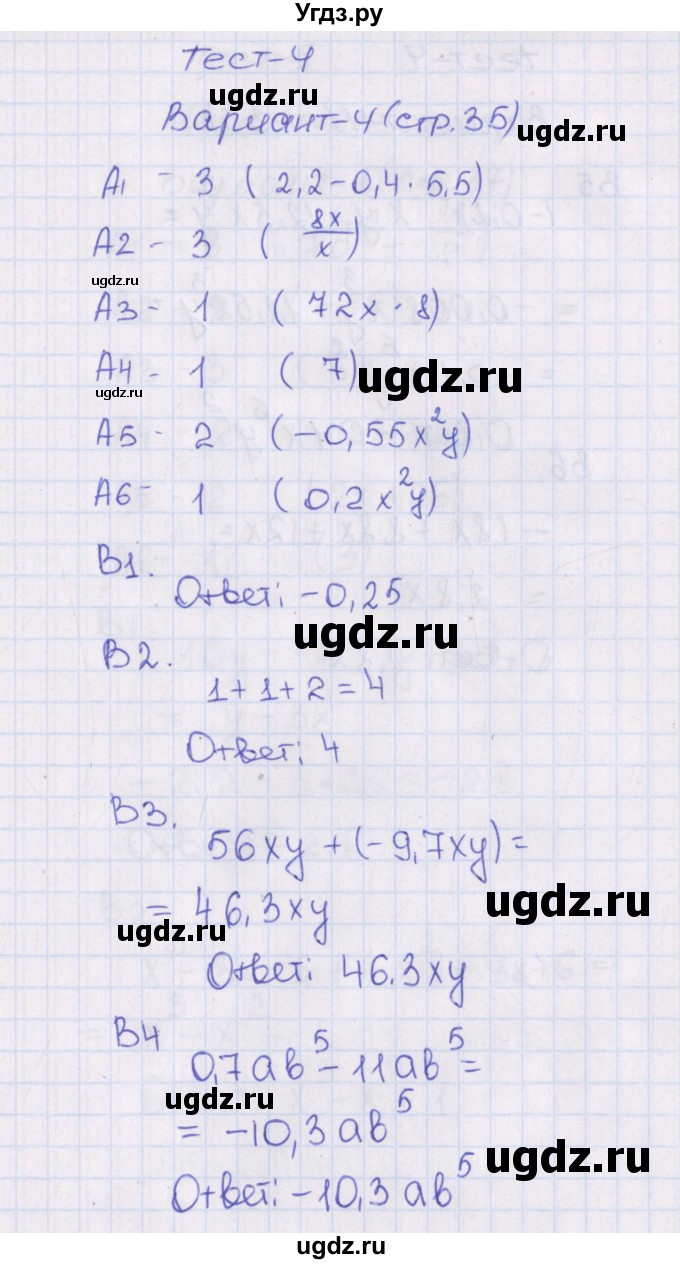 Угдз.ру
Тест-4
ugdz.ru
Вариант-4 (стр.35)
ugdz.ru
A1 - 3 ( 2,2-0,4·5,5)
A2 - 3 ( 8x/x )
ugdz.ru
A3 - 1 ( 72x·8)
A4 - 1 ( 7)
ugdz.ru
ugdz.ru
A5 - 2 (-0,55x²y)
A6 - 1 ( 0,2x²y)
B1.
Ответ: -0,25
ugdz.ru
B2.
1+1+2=4
Ответ: 4
B3.
56xy+(-9,7xy)=
ugdz.ru
= 46,3xy
ugdz.ru
Ответ: 46.3xy
B4
0,7ab⁵-11ab⁵=
ugdz.ru
= -10,3ab⁵
ugdz.ru
Ответ: -10,3ab⁵
ugdz.ru